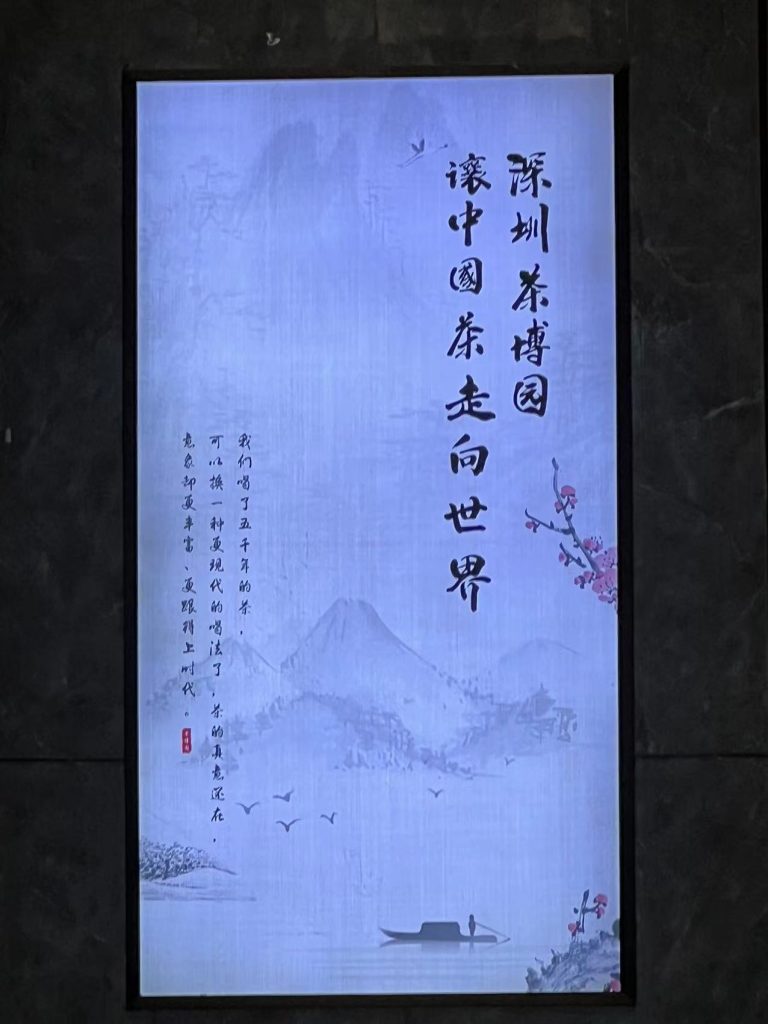 深圳茶博园
讓中國茶走向世界
我们喝了五千年的茶，
可以换一种更现代的喝法了，茶的真意还在，
意象却更丰富、更跟得上时代。